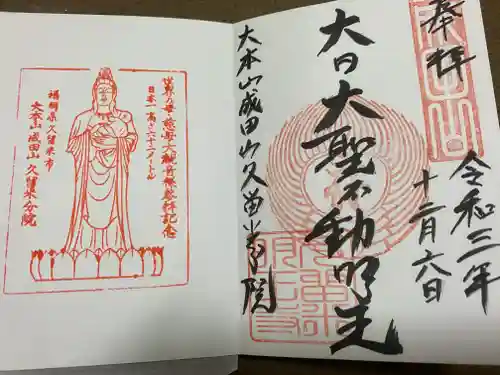 奉拝
令和三年
十二月六日
大日大聖不動明王
大本山成田山久留米分院
世界平和慈母大観音様参拝記念
日本一高さ六十二メートル
福岡県久留米市
大本山成田山久留米分院